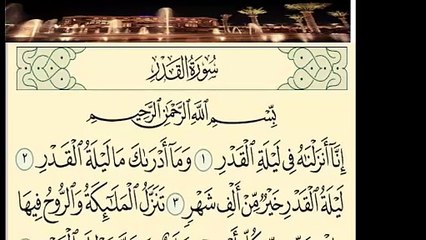 سُورَةُ القَدْرِ
بِسْمِ اللَّهِ الرَّحْمَٰنِ الرَّحِيمِ
إِنَّا أَنزَلْنَاهُ فِي لَيْلَةِ الْقَدْرِ ١ وَمَا أَدْرَاكَ مَا لَيْلَةُ الْقَدْرِ ٢
لَيْلَةُ الْقَدْرِ خَيْرٌ مِّنْ أَلْفِ شَهْرٍ ٣ تَنَزَّلُ الْمَلَائِكَةُ وَالرُّوحُ فِيهَا